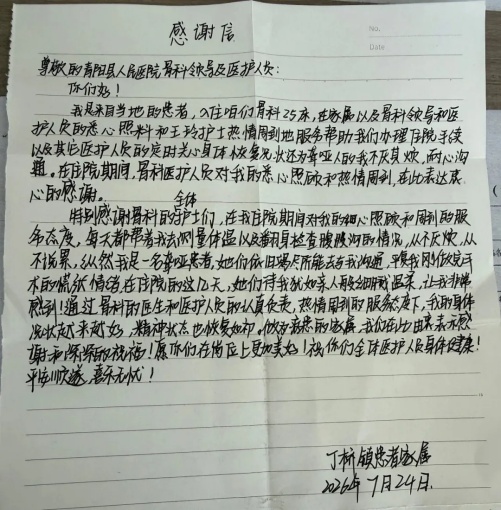 感谢信
No.
Date
尊敬的青阳县人民医院骨科领导及医护人员:
你们好!
我是来自当地的患者,入住咱们骨科25床,在家属以及骨科领导和医
护人员的悉心照料和王玲护士热情周到地服务帮助我们办理住院手续
以及其它医护人员的定时关心身体恢复情况,状还为聋哑的我不厌其烦,耐心沟
通。在住院期间,骨科医护人员对我的悉心照顾和热情周到,在此表达衷
心的感谢。
特别感谢骨科的全体护士们,在我住院期间对我的细心照顾和周到的服
务态度,每天都帮着我去测量体温以及翻身检查腹股沟的情况,从不厌烦,从
不说累,纵然我是一名聋哑患者,她们依旧竭尽所能去与我沟通,平复我刚做完手
术的慌乱情绪,在住院的这几天,她们待我犹如亲人般细腻温柔,让我非常
感到!通过骨科的医生和医护人员的认真负责,热情周到的服务态度下,我的身体
况状越来越好,精神状态也恢复如初。做为患者的家属,我们在此由衷表示感
谢和深深的祝福!愿你们在岗位上更加美好!祝你们全体医护人员身体健康!
平安顺遂,喜乐无忧!
丁桥镇患者家属
2026年7月24日.